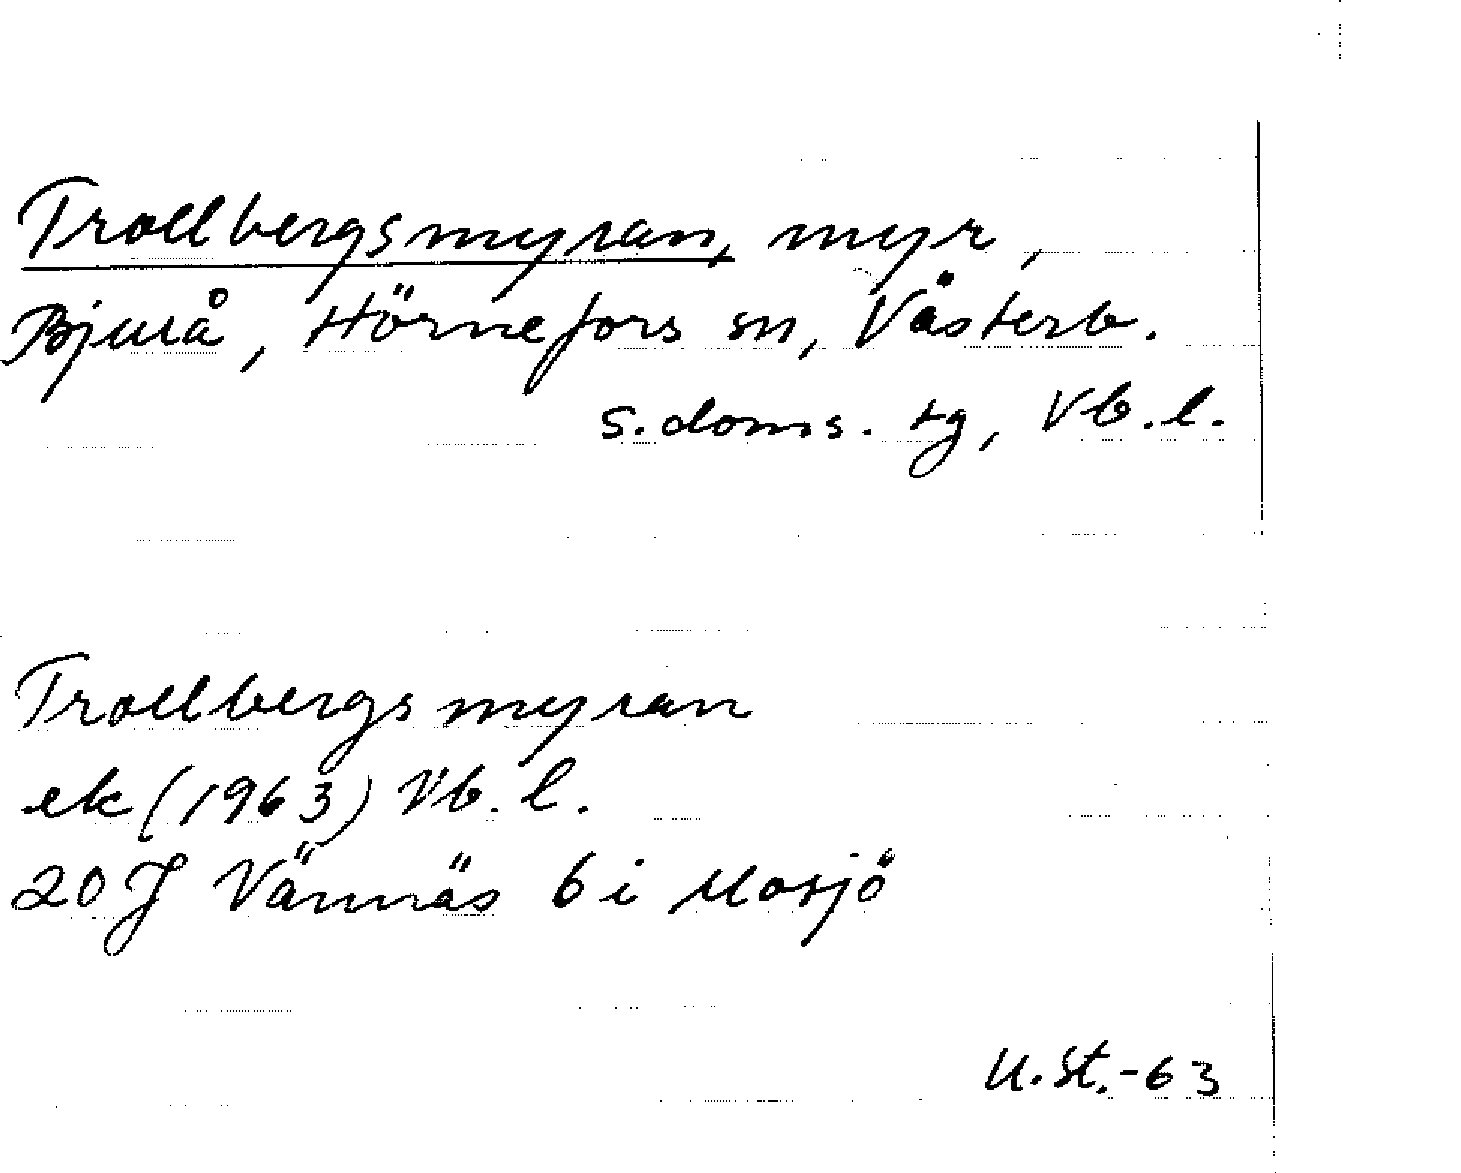 Trollbergsmyran, myr,
Bjurå, Hörnefors sn, Västerb.
s. doms. tg, Vb. l.
Trollbergsmyran
ek (1963) Vb. l.
20 J Vännäs 6 i Mosjö
U. St.-63